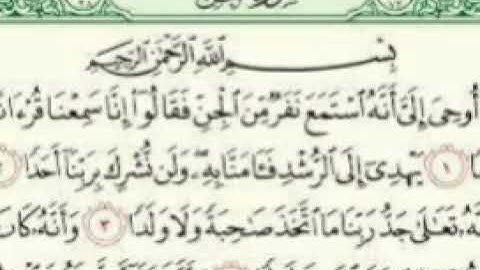 بِسْمِ اللَّهِ الرَّحْمَٰنِ الرَّحِيمِ
أُوحِىَ إِلَىَّ أَنَّهُ ٱسْتَمَعَ نَفَرٌ مِّنَ ٱلْجِنِّ فَقَالُوٓا۟ إِنَّا سَمِعْنَا قُرْءَانً
ا ١ يَهْدِىٓ إِلَى ٱلرُّشْدِ فَـَٔامَنَّا بِهِۦ وَلَن نُّشْرِكَ بِرَبِّنَآ أَحَدًا
هُۥ تَعَٰلَىٰ جَدُّ رَبِّنَا مَا ٱتَّخَذَ صَٰحِبَةً وَلَا وَلَدًا ٣ وَأَنَّهُۥ كَا